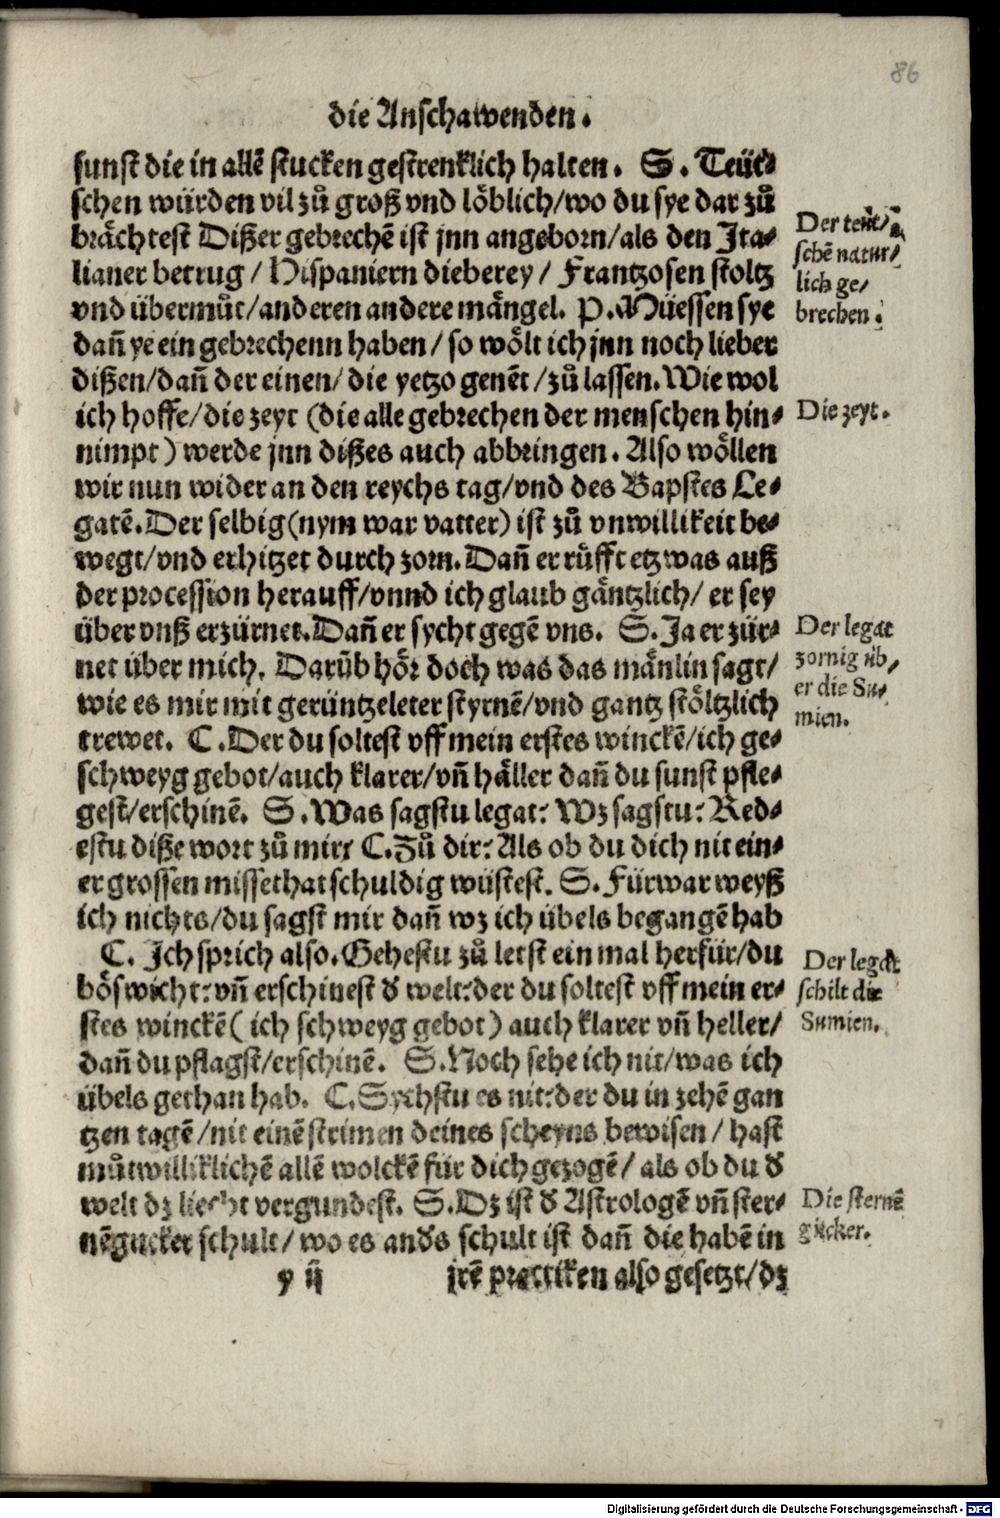 86
die Anschawenden.
sunst die in allẽ stucken gestrenklich halten. S. Teüt⸗
schen würden vil zů groß vnd löblich/wo du sye dar zů
brächtest Dißer gebrechẽ ist jnn angeborn/als den Ita⸗
lianer betrug / Hispaniern dieberey / Frantzosen stoltz
vnd übermůt/anderen andere mängel. P. Müessen sye
dañ ye ein gebrechenn haben / so wölt ich jnn noch lieber
dißen/dañ der einen/ die yetzo genẽt /zů lassen. Wie wol
ich hoffe/die zeyt (die alle gebrechen der menschen hin⸗
nimpt) werde jnn dißes auch abbringen. Also wöllen
wir nun wider an den reychs tag/vnd des Bapstes Le⸗
gatẽ. Der selbig(nym war vatter) ist zů vnwillikeit be⸗
wegt/vnd erhitzet durch zorn. Dañ er růfft etzwas auß
der procession herauff/vnnd ich glaub gäntzlich/ er sey
über vnß erzürnet. Dañ er sycht gegẽ vns. S. Ja er zür⸗
net über mich. Darũb hör doch was das mänlin sagt/
wie es mir mit gerüntzeleter styrnẽ/vnd gantz stöltzlich
trewet. C. Der du soltest vff mein erstes winckẽ/ich ge⸗
schweyg gebot/auch klarer/vñ häller dañ du sunst pfle⸗
gest/erschinẽ. S. Was sagstu legat: Wz sagstu: Red⸗
estu diße wort zů mir: C. Zů dir: Als ob du dich nit ein⸗
er grossen missethat schuldig wüstest. S. Fürwar weyß
ich nichts/du sagst mir dañ wz ich übels begangẽ hab
C. Ich sprich also. Gehestu zů letst ein mal herfür/du
böswicht: vñ erschinest d̕ welt: der du soltest vff mein er⸗
stes winckẽ( ich schweyg gebot) auch klarer vñ heller/
dañ du pflagst/erschinẽ. S. Noch sehe ich nit/was ich
übels gethan hab. C. Sychstu es nit: der du in zehẽ gan
tzen tagẽ /nit einẽ strimen deines scheyns bewisen / hast
můtwilliklichẽ allẽ wolckẽ für dich gezogẽ/ als ob du d̕
welt dz liecht vergundest. S. Dz ist d̕ Astrologẽ vñ ster⸗
nẽgucker schult/ wo es and̕s schult ist dañ die habẽ in
y ij jrẽ prettiken also gesetzt/dz
Der teüt/
schẽ natur/
lich ge/
brechen.
Die zeyt.
Der legat
zornig üb/
er die Su/
mien.
Der legat
schilt die
Sumien.
Die sternẽ
gücker.
Digitalisierung gefördert durch die Deutsche Forschungsgemeinschaft - DFG